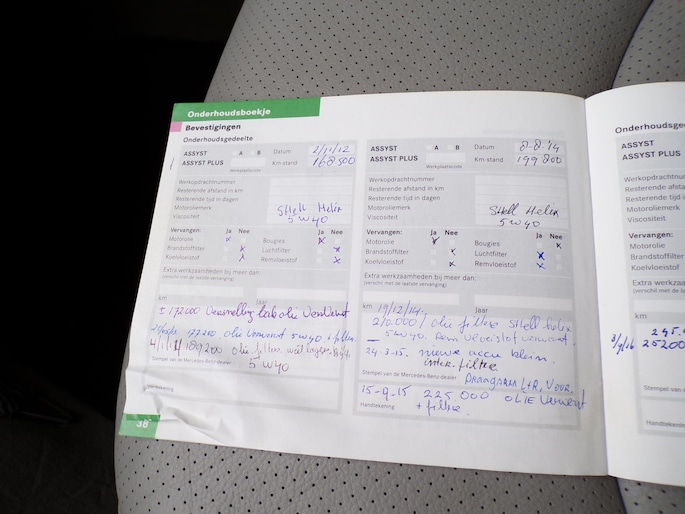 Onderhoudsboekje
Bevestigingen
Onderhoudsgedeelte
ASSYST A B Datum 2/11/12
ASSYST PLUS Km-stand 168.500
Werkplaatscode
Werkopdrachtnummer
Resterende afstand in km
Resterende tijd in dagen
Motoroliemerk Shell Helix
Viscositeit 5W40
Vervangen: Ja Nee Ja Nee
Motorolie x Bougies x
Brandstoffilter x Luchtfilter x
Koelvloeistof x Remvloeistof x
Extra werkzaamheden bij meer dan:
(verschil met de laatste vervanging)
km Jaar
± 172000 Versnellingbak olie Ververst
177250 olie Ververst 5W40 + filter
189200 olie filter
5W40
Stempel van de Mercedes-Benz-dealer
Handtekening
38
ASSYST A B Datum 8-8-14
ASSYST PLUS Km-stand 199.800
Werkplaatscode
Werkopdrachtnummer
Resterende afstand in km
Resterende tijd in dagen
Motoroliemerk Shell Helix
Viscositeit 5W40
Vervangen: Ja Nee Ja Nee
Motorolie x Bougies x
Brandstoffilter x Luchtfilter x
Koelvloeistof x Remvloeistof x
Extra werkzaamheden bij meer dan:
(verschil met de laatste vervanging)
km 19/12/14 Jaar
210.000 / olie filter Shell helix
5W40. Rem Vloeistof ververst
24-3-15. nieuwe accu klein.
inter. filter
Stempel van de Mercedes-Benz-dealer
Draagarm L+R. Voor.
15-9-15 225.000 OLIE Ververst
Handtekening + filter.
Onderhoudsge
ASSYST
ASSYST PLUS
Werkopdrachtnu
Resterende afst
Resterende tijd
Motoroliemerk
Viscositeit
Vervangen:
Motorolie
Brandstoffilter
Koelvloeistof
Extra werkza
(verschil met de
km
245.
25200
Stempel van
Handtekening